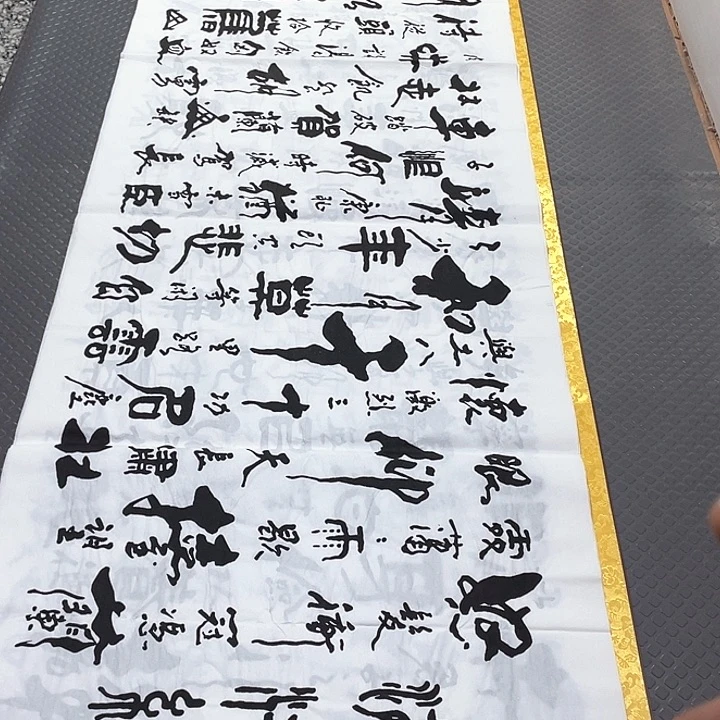 怒髮衝冠憑闌
處瀟:雨歇擡望
眼仰天長嘯壯
懷激烈三十功名塵
與土八千里路雲
和月莫等閒白
了少年頭空悲切
靖康恥猶未雪臣
子恨何時滅駕長
車踏破賀蘭山缺
壯志飢餐胡虜
肉笑談渴飲匈奴血
待從頭收拾舊山